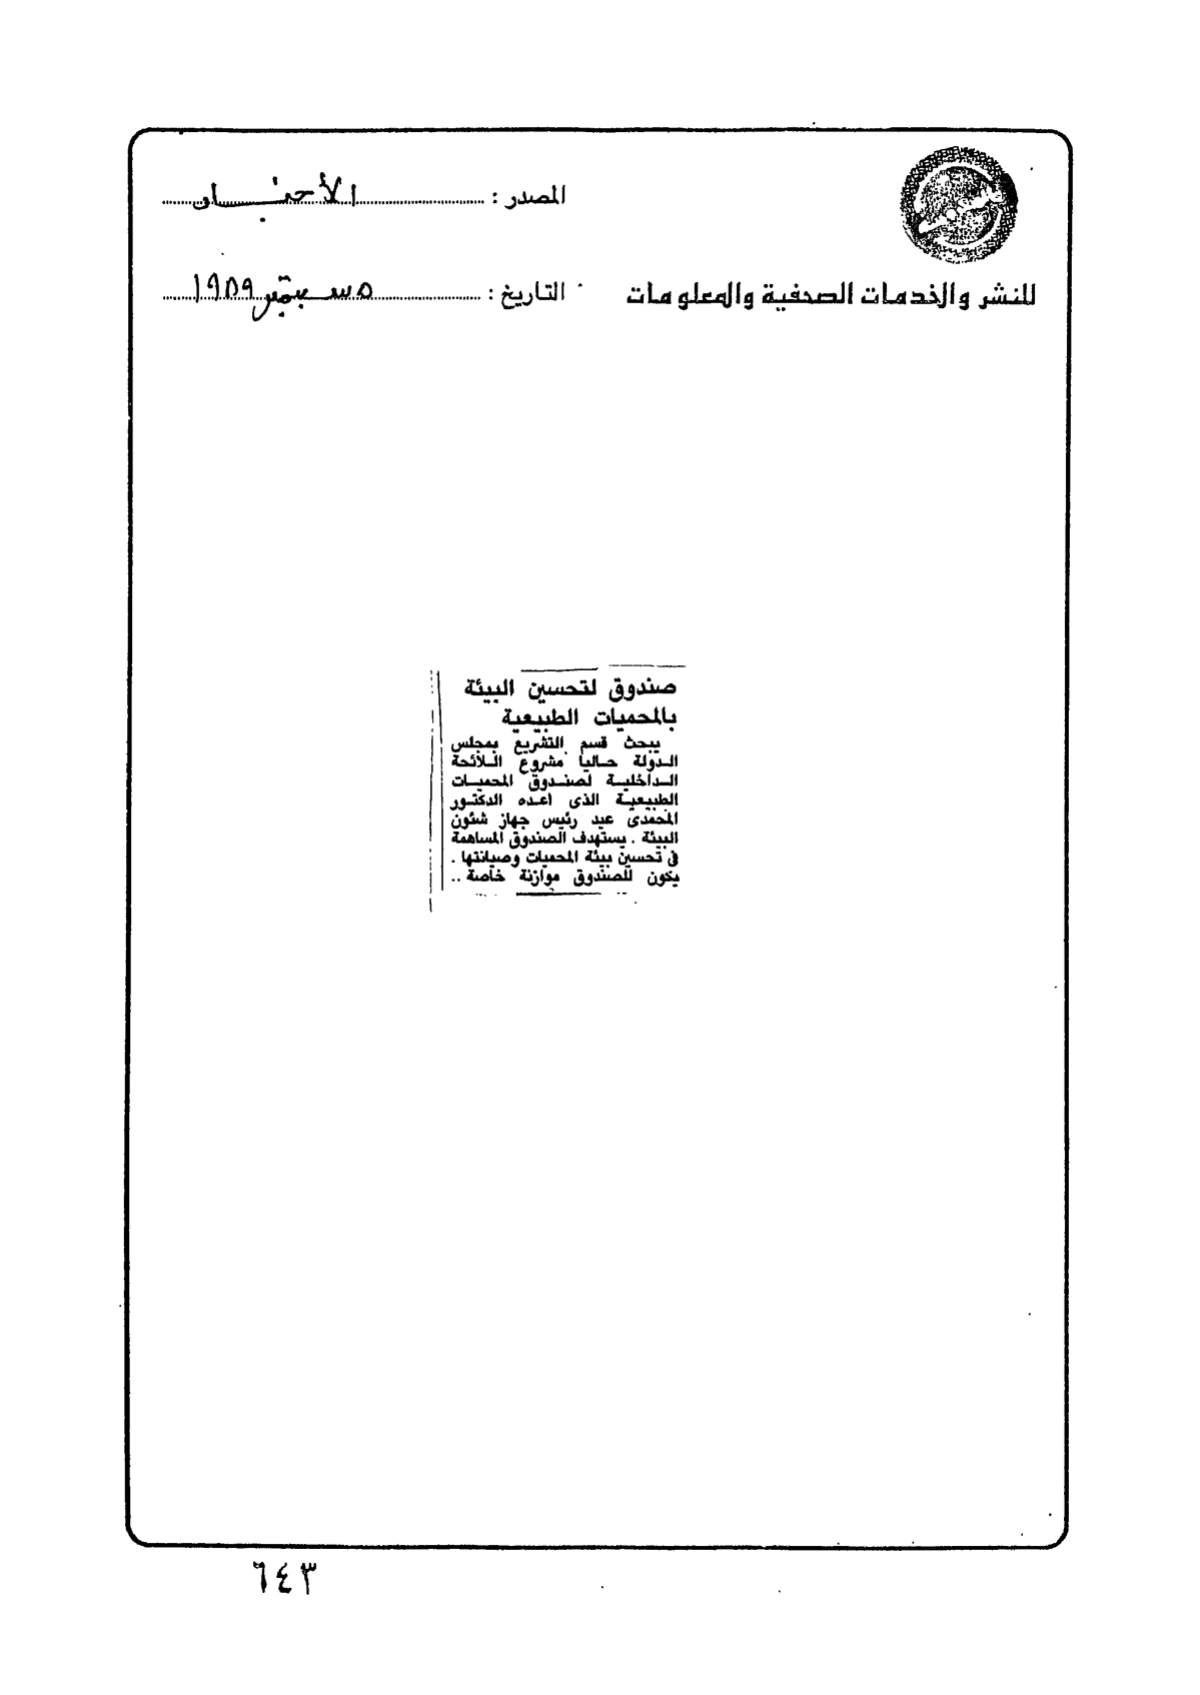 المصدر : الأخبار
للنشر والخدمات الصحفية والمعلومات
التاريخ : ٥ سبتمبر ١٩٥٩
صندوق لتحسين البيئة
بالمحميات الطبيعية
يبحث قسم التشريع بمجلس
الدولة حاليا مشروع اللائحة
الداخلية لصندوق المحميات
الطبيعية الذى اعده الدكتور
المحمدى عيد رئيس جهاز شئون
البيئة . يستهدف الصندوق المساهمة
فى تحسين بيئة المحميات وصيانتها .
يكون للصندوق موازنة خاصة ..
٦٤٣